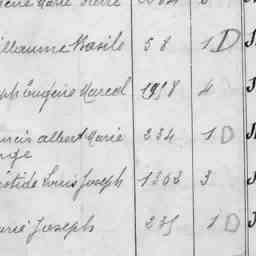 Marie Pierre
illaume Basile 58 1 D
ph Eugène Marcel 1958 4
ncis albert Marie 234 1 D
nge
otide Louis Joseph 1202 3
arie Joseph 235 1 D